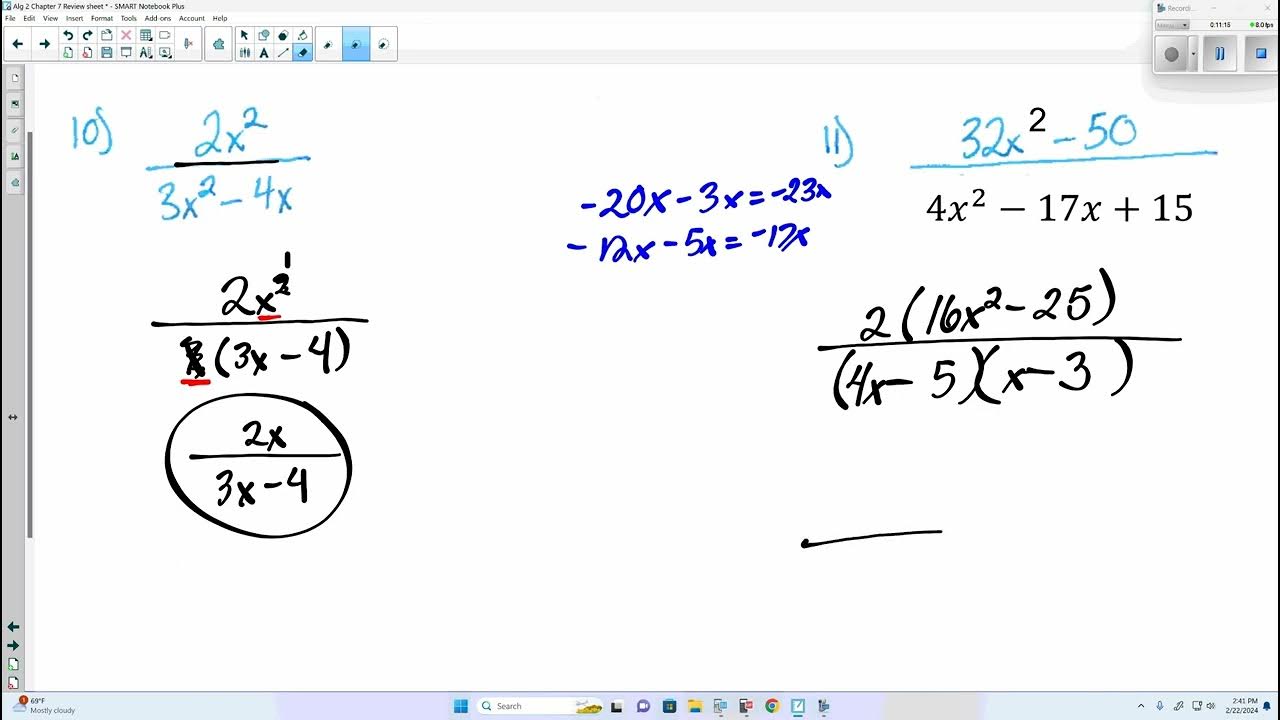 Alg 2 Chapter 7 Review sheet * - SMART Notebook Plus
File Edit View Insert Format Tools Add-ons Account Help
Recordi...
0:11:15
8.0 fps
10)
2x²
3x² - 4x
2x² 1
(3x - 4)
2x
3x - 4
-20x - 3x = -23x
-12x - 5x = -17x
11)
32x² - 50
4x² − 17x + 15
2(16x² - 25)
(4x - 5)(x - 3)
1
69°F
Mostly cloudy
Search
2:41 PM
2/22/2024